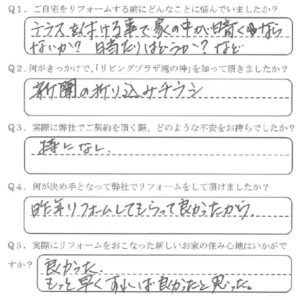 Q1、ご自宅をリフォームする前にどんなことに悩んでいましたか？
テラスをつける事で家の中が暗くなら
ないか？ 日当たりはどうか？など
Q2、何がきっかけで、「リビングプラザ滝の神」を知って頂きましたか？
新聞の折り込みチラシ
Q3、実際に弊社でご契約を頂く際、どのような不安をお持ちでしたか？
特になし。
Q4、何が決め手となって弊社でリフォームをして頂けましたか？
昨年リフォームしてもらって良かったから。
Q5、実際にリフォームをおこなった新しいお家の住み心地はいかがで
すか？
良かった。
もっと早くすれば良かったと思った。